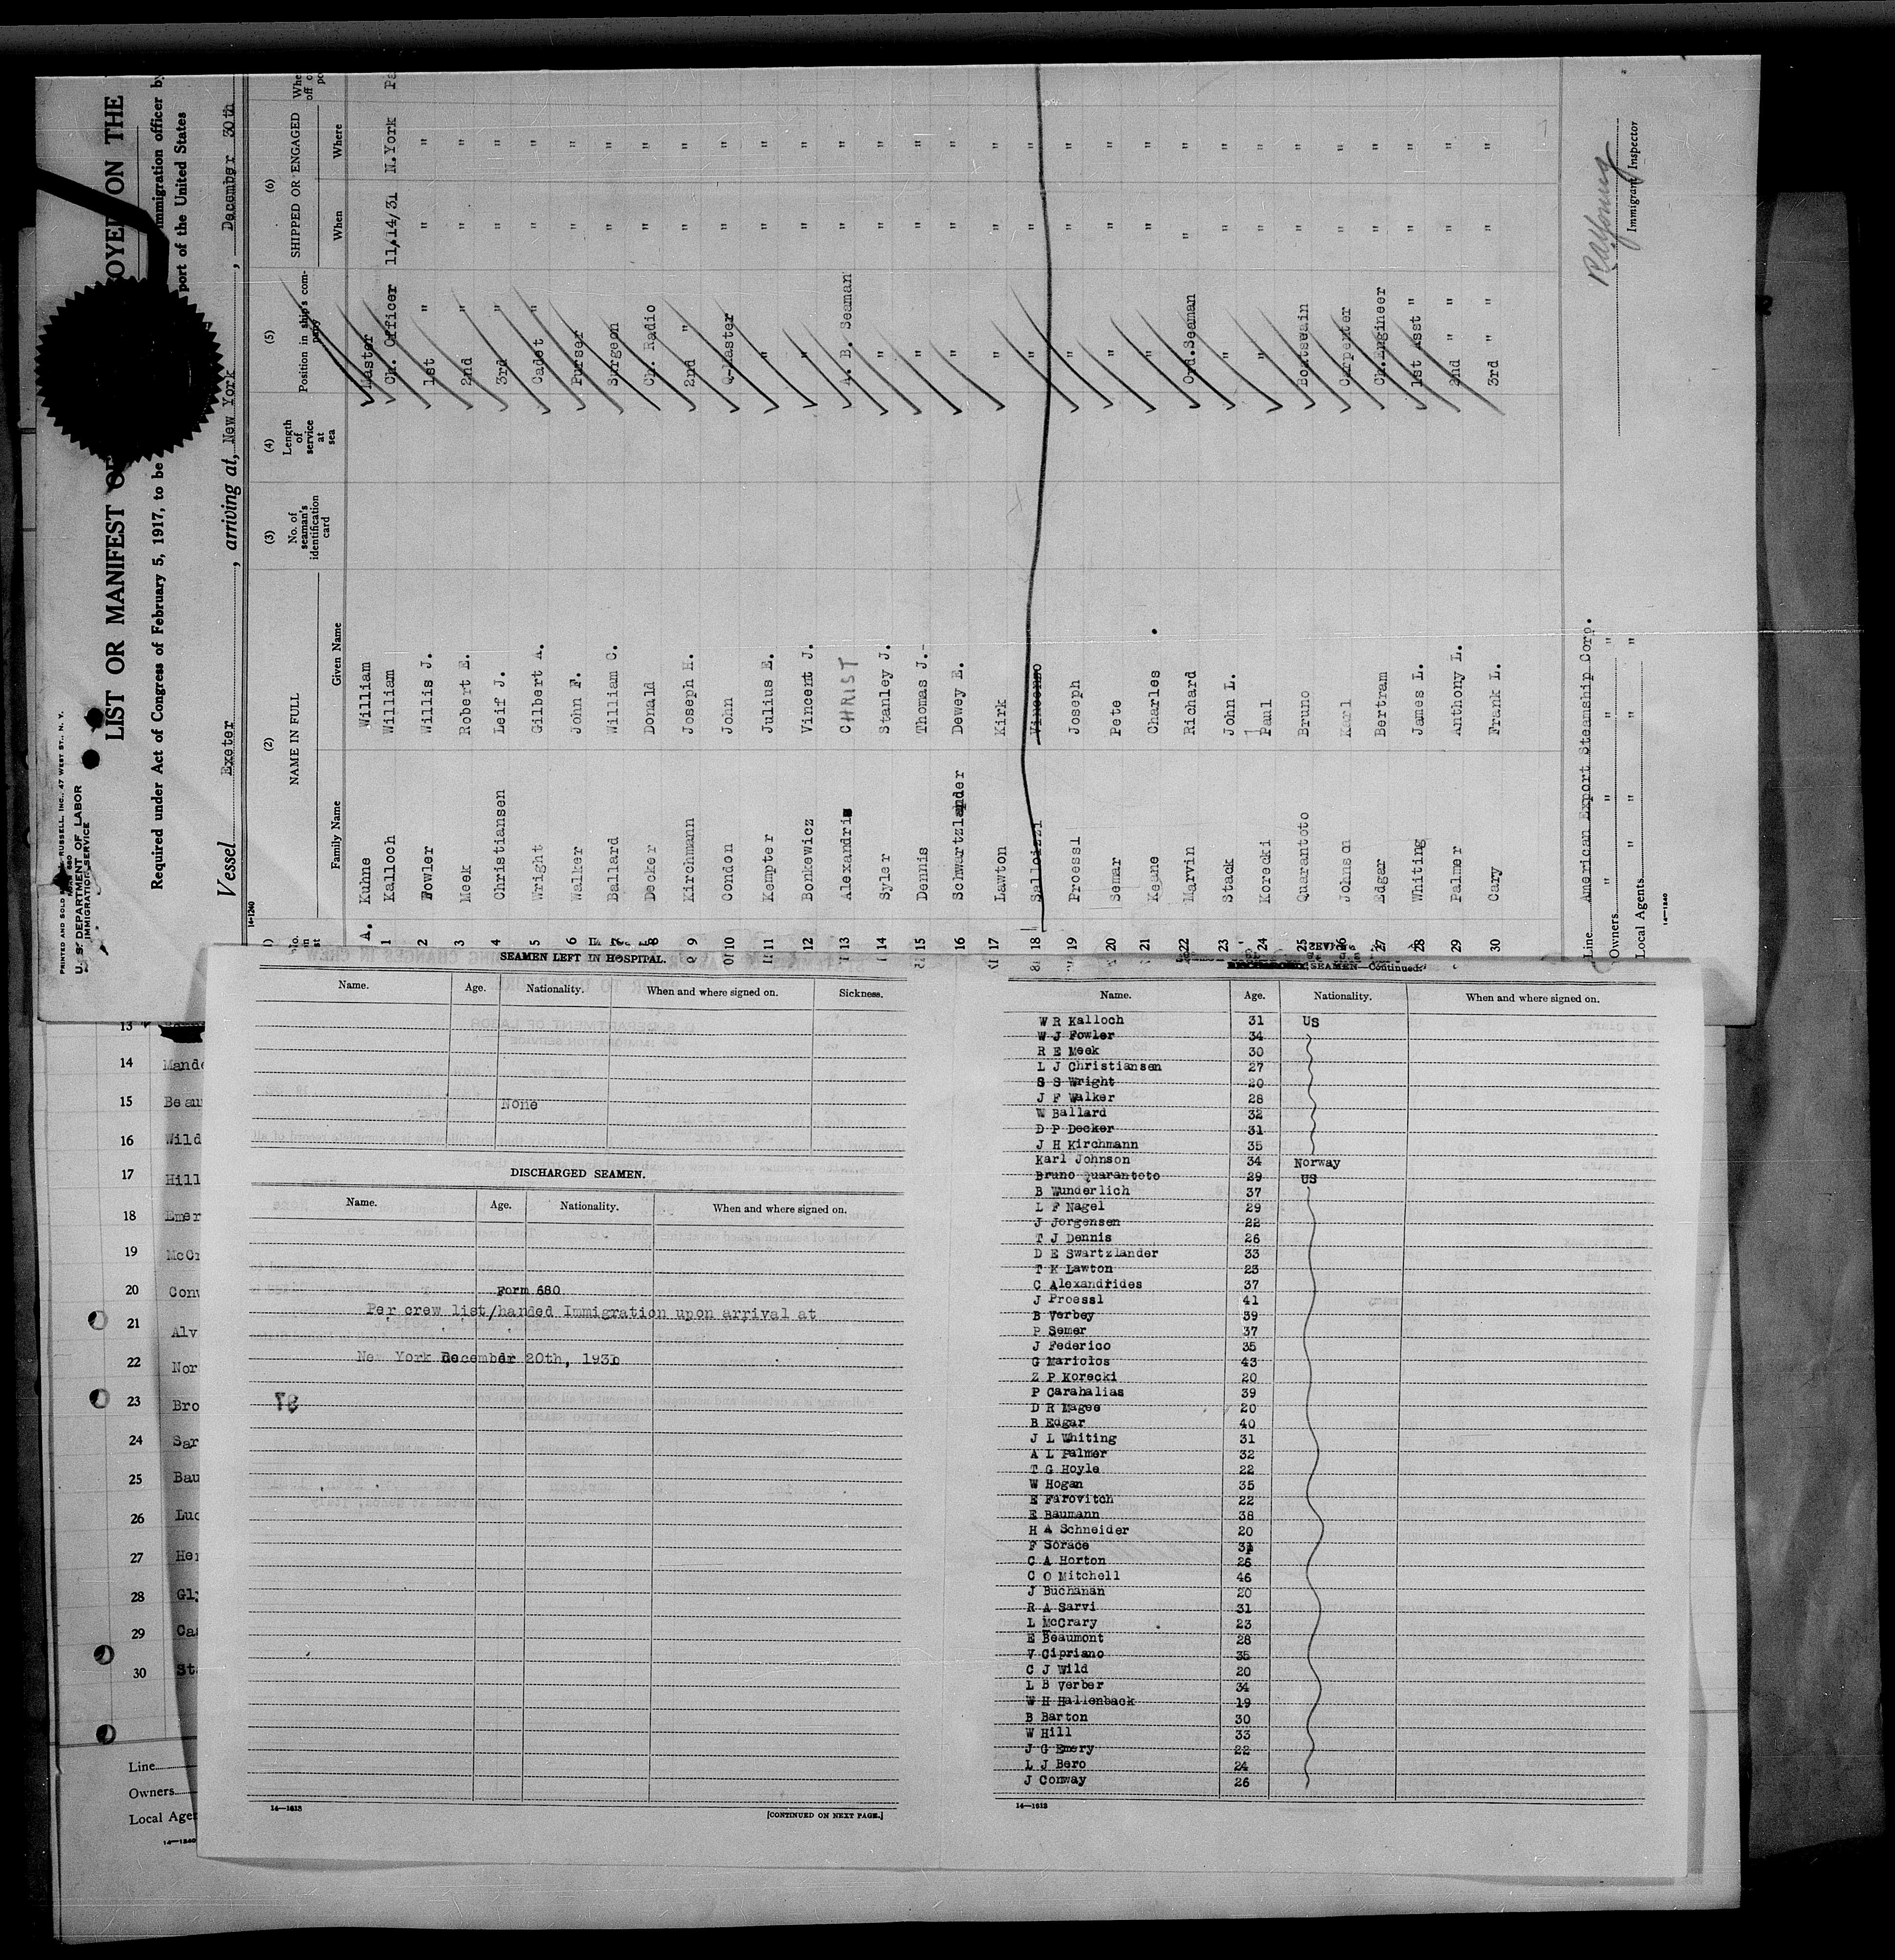 PRINTED AND SOLD RUSSELL, INC., 47 WEST ST., N. Y.
U. S. DEPARTMENT OF LABOR
IMMIGRATION SERVICE
LIST OR MANIFEST OF OYED ON THE
Required under Act of Congress of February 5, 1917, to be immigration officer by
port of the United States
Vessel Exeter, arriving at, New York, December 30th
14-1240
(2) (3) (4) (5) (6)
NAME IN FULL No. of seaman's identification card Length of service at sea Position in ship's company SHIPPED OR ENGAGED
Family Name Given Name When Where
A. Kuhne William Master
1 Kalloch William Ch. Officer 11/14/31 N.York Pa
2 Fowler Willis J. 1st " " "
3 Meek Robert E. 2nd " " "
4 Christiansen Leif J. 3rd " " "
5 Wright Gilbert A. Cadet " " "
6 Walker John F. Purser " "
7 Ballard William C. Surgeon " "
8 Decker Donald Ch. Radio " "
9 Kirchmann Joseph H. 2nd " " "
10 Condon John Q-Master " "
11 Kempter Julius E. " " "
12 Bonkewicz Vincent J. " " "
13 Alexandris CHRIST A. B. Seaman " "
14 Syler Stanley J. " " "
15 Dennis Thomas J. " " "
16 Schwartzlander Dewey E. " " "
17 Lawton Kirk " " "
18 Salloizzi Vincenzo " " "
19 Proessl Joseph " " "
20 Semar Pete " " "
21 Keane Charles " " "
22 Marvin Richard Ord.Seaman " "
23 Stack John L. " " "
24 Korecki Paul " " "
25 Quarantoto Bruno Boatswain " "
26 Johnson Karl Carpenter " "
27 Edgar Bertram Ch.Engineer " "
28 Whiting James L. 1st Asst " " "
29 Palmer Anthony L. 2nd " " " "
30 Cary Frank L. 3rd " " " "
Line American Export Steamship Corp.
Owners " " " "
Local Agents " " " "
14-1240
Immigrant Inspector
SEAMEN LEFT IN HOSPITAL.
Name. Age. Nationality. When and where signed on. Sickness.
None
DISCHARGED SEAMEN.
Name. Age. Nationality. When and where signed on.
Form 680
Per crew list/handed Immigration upon arrival at
New York December 20th, 1930
14-1613
[CONTINUED ON NEXT PAGE.]
SEAMEN—Continued.
Name. Age. Nationality. When and where signed on.
W R Kalloch 31 US
W J Fowler 34
R E Meek 30
L J Christiansen 27
S S Wright 20
J F Walker 28
W Ballard 32
D P Decker 31
J H Kirchmann 35
Karl Johnson 34 Norway
Bruno Quarantoto 29 US
B Wunderlich 37
L F Nagel 29
J Jorgensen 22
T J Dennis 26
D E Swartzlander 33
T K Lawton 23
C Alexandrides 37
J Proessl 41
B Verbey 39
P Semer 37
J Federico 35
G Mariolos 43
Z P Korecki 20
P Carahalias 39
D R Magee 20
B Edgar 40
J L Whiting 31
A L Palmer 32
T G Hoyle 22
W Hogan 35
E Farovitch 22
E Baumann 38
H A Schneider 20
F Sorace 31
C A Horton 26
C O Mitchell 46
J Buchanan 20
R A Sarvi 31
L McCrary 23
E Beaumont 28
V Cipriano 35
C J Wild 20
L B Verber 34
W H Hallenback 19
B Barton 30
W Hill 33
J G Emery 22
L J Bero 24
J Conway 26
14-1613
13
14 Mande
15 Beau
16 Wild
17 Hill
18 Emer
19 McCr
20 Conv
21 Alv
22 Nor
23 Bro
24 Sar
25 Bau
26 Luc
27 Her
28 Gly
29 Cas
30 St
Line
Owners
Local Agen
14-1240